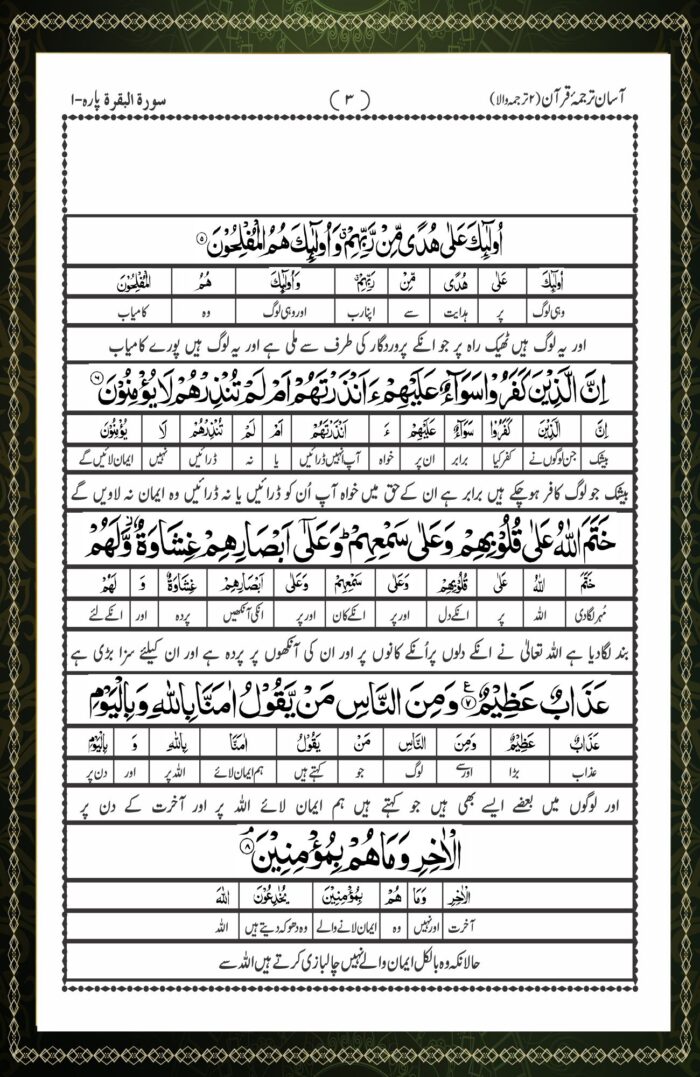 آسان ترجمۂ قرآن (۲ ترجمہ والا) (۳) سورۃ البقرۃ پارہ-۱
اُولٰٓئِكَ عَلٰى هُدًى مِّنْ رَّبِّهِمْ ۗ وَاُولٰٓئِكَ هُمُ الْمُفْلِحُوْنَ ۝۵
اُولٰٓئِكَ عَلٰى هُدًى مِّنْ رَّبِّهِمْ وَاُولٰٓئِكَ هُمُ الْمُفْلِحُوْنَ
وہی لوگ پر ہدایت سے اپنا رب اور وہی لوگ وہ کامیاب
اور یہ لوگ ہیں ٹھیک راہ پر جو انکے پروردگار کی طرف سے ملی ہے اور یہ لوگ ہیں پورے کامیاب
اِنَّ الَّذِيْنَ كَفَرُوْا سَوَآءٌ عَلَيْهِمْ ءَاَنْذَرْتَهُمْ اَمْ لَمْ تُنْذِرْهُمْ لَا يُؤْمِنُوْنَ ۝۶
اِنَّ الَّذِيْنَ كَفَرُوْا سَوَآءٌ عَلَيْهِمْ ءَ اَنْذَرْتَهُمْ اَمْ لَمْ تُنْذِرْهُمْ لَا يُؤْمِنُوْنَ
بیشک جن لوگوں نے کفر کیا برابر ان پر خواہ آپ انہیں ڈرائیں یا نہ ڈرائیں نہیں ایمان لائیں گے
بیشک جو لوگ کافر ہوچکے ہیں برابر ہے ان کے حق میں خواہ آپ اُن کو ڈرائیں یا نہ ڈرائیں وہ ایمان نہ لاویں گے
خَتَمَ اللّٰهُ عَلٰى قُلُوْبِهِمْ وَعَلٰى سَمْعِهِمْ ؕ وَعَلٰٓى اَبْصَارِهِمْ غِشَاوَةٌ ۫ وَّلَهُمْ
خَتَمَ اللّٰهُ عَلٰى قُلُوْبِهِمْ وَعَلٰى سَمْعِهِمْ وَعَلٰٓى اَبْصَارِهِمْ غِشَاوَةٌ وَ لَهُمْ
مُہر لگا دی اللہ پر انکے دل اور پر انکے کان اور پر انکی آنکھیں پردہ اور انکے لئے
بند لگا دیا ہے اللہ تعالیٰ نے انکے دلوں پر اُنکے کانوں پر اور ان کی آنکھوں پر پردہ ہے اور ان کیلئے سزا بڑی ہے
عَذَابٌ عَظِيْمٌ ۝۷ وَمِنَ النَّاسِ مَنْ يَّقُوْلُ اٰمَنَّا بِاللّٰهِ وَبِالْيَوْمِ
عَذَابٌ عَظِيْمٌ وَمِنَ النَّاسِ مَنْ يَقُوْلُ اٰمَنَّا بِاللّٰهِ وَ بِالْيَوْمِ
عذاب بڑا اور سے لوگ جو کہتے ہیں ہم ایمان لائے اللہ پر اور دن پر
اور لوگوں میں بعضے ایسے بھی ہیں جو کہتے ہیں ہم ایمان لائے اللہ پر اور آخرت کے دن پر
الْاٰخِرِ وَمَا هُمْ بِمُؤْمِنِيْنَ ۝۸
الْاٰخِرِ وَمَا هُمْ بِمُؤْمِنِيْنَ يُخٰدِعُوْنَ اللّٰهَ
آخرت اور نہیں وہ ایمان لانے والے وہ دھوکہ دیتے ہیں اللہ
حالانکہ وہ بالکل ایمان والے نہیں چالبازی کرتے ہیں اللہ سے